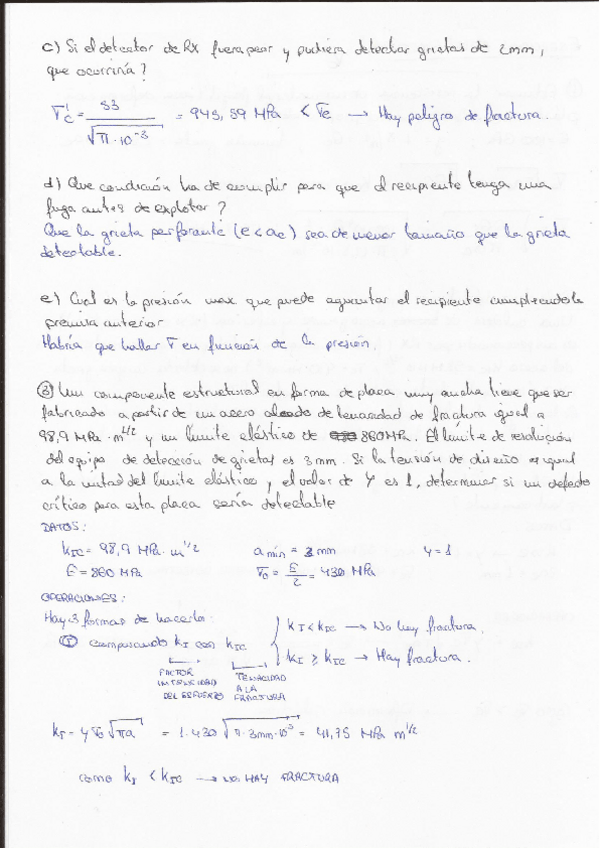 c) Si el detector de Rx fuera peor y pudiera detectar grietas de 2mm,
que ocurriría?
σc' = 53 / √(π·10⁻³) = 945,59 MPa < σe → Hay peligro de fractura.
d) Que condición ha de cumplir para que el recipiente tenga una
fuga antes de explotar?
Que la grieta perforante (e<ac) sea de menor tamaño que la grieta
detectable.
e) Cual es la presión max que puede aguantar el recipiente cumpliendo la
premisa anterior
Habría que hallar σ en función de la presión.
③ Un componente estructural en forma de placa muy ancha tiene que ser
fabricado a partir de un acero aleado de tenacidad de fractura igual a
98,9 MPa·m^1/2 y un límite elástico de 860MPa. El límite de resolución
del equipo de detección de grietas es 3mm. Si la tensión de diseño es igual
a la mitad del límite elástico y el valor de Y es 1, determinar si un defecto
crítico para esta placa sería detectable
DATOS:
kIC = 98,9 MPa·m^1/2 a min = 3 mm Y=1
E = 860 MPa σ0 = E/2 = 430 MPa
OPERACIONES:
Hay 3 formas de hacerlo:
① comparando kI con kIC { kI < kIC → No hay fractura.
kI ≥ kIC → Hay fractura.
FACTOR INTENSIDAD DEL ESFUERZO
TENACIDAD A LA FRACTURA
kI = Y σ0 √πa = 1·430 √(π·3mm·10⁻³) = 41,75 MPa m^1/2
como kI < kIC → NO HAY FRACTURA